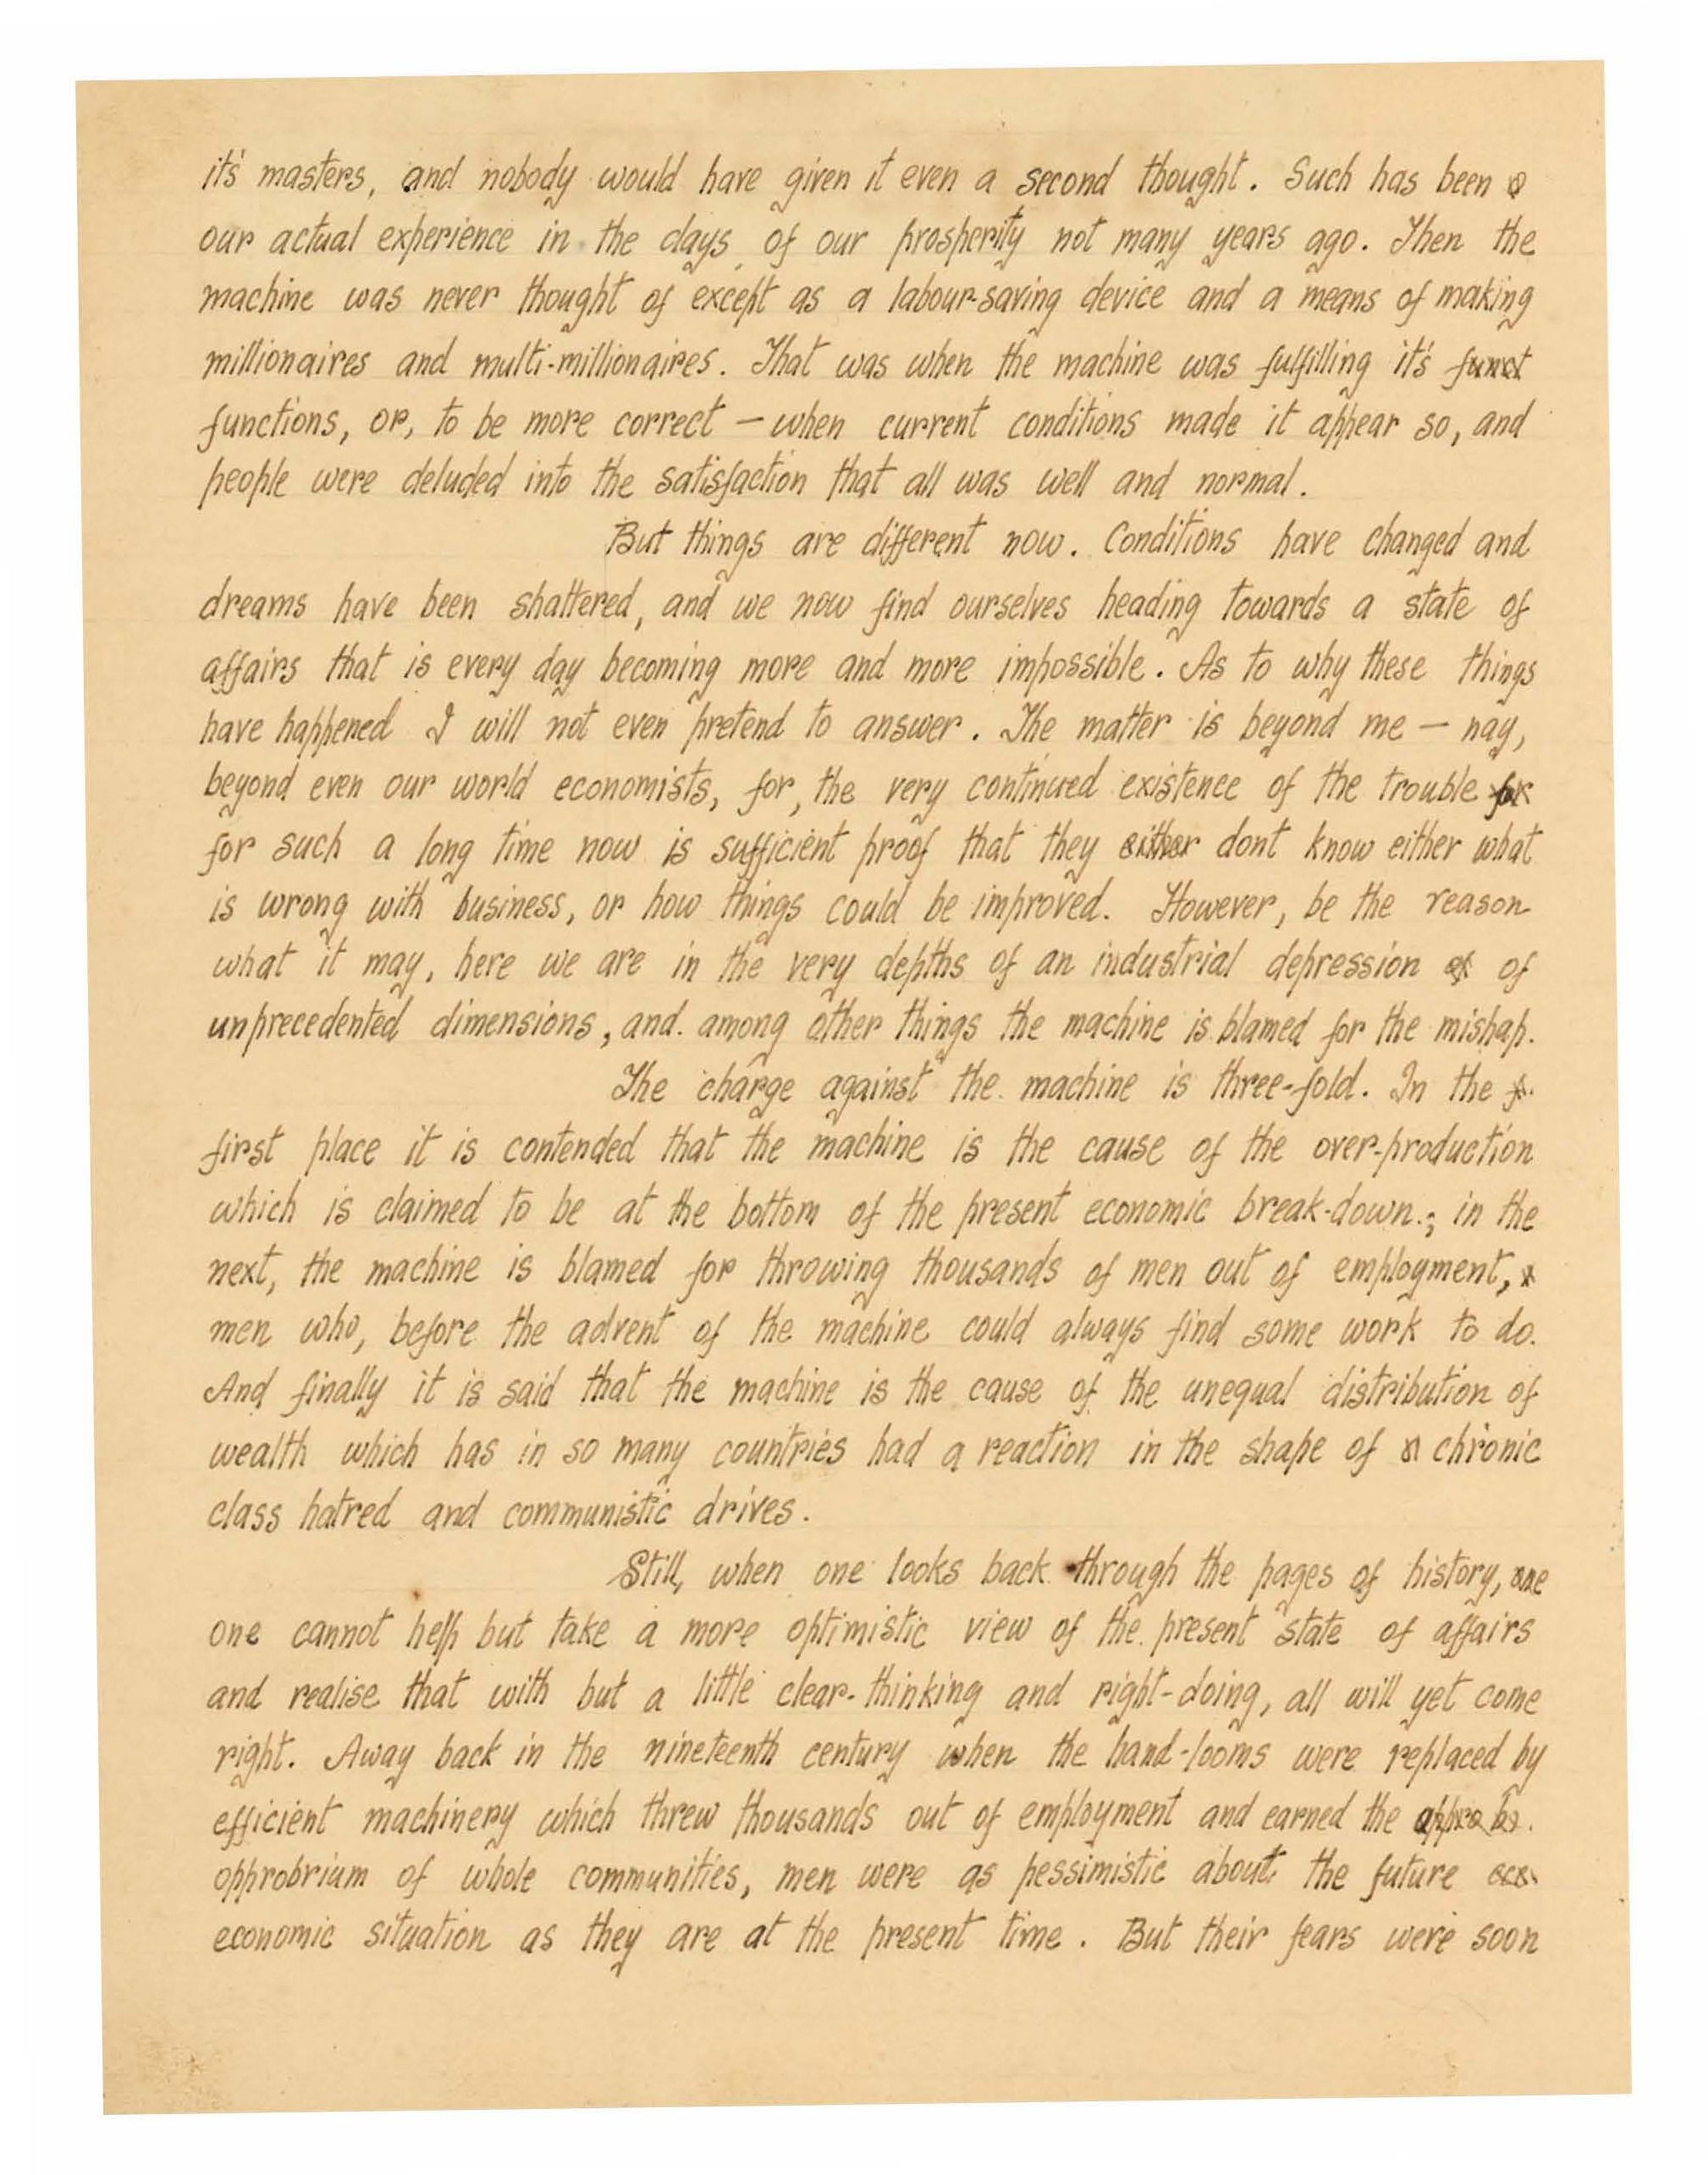 it's masters, and nobody would have given it even a second thought. Such has been
our actual experience in the days of our prosperity not many years ago. Then the
machine was never thought of except as a labour-saving device and a means of making
millionaires and multi-millionaires. That was when the machine was fulfilling it's funct
functions, or, to be more correct — when current conditions made it appear so, and
people were deluded into the satisfaction that all was well and normal.
But things are different now. Conditions have changed and
dreams have been shattered, and we now find ourselves heading towards a state of
affairs that is every day becoming more and more impossible. As to why these things
have happened I will not even pretend to answer. The matter is beyond me — nay,
beyond even our world economists, for, the very continued existence of the trouble for
for such a long time now is sufficient proof that they either dont know either what
is wrong with business, or how things could be improved. However, be the reason
what it may, here we are in the very depths of an industrial depression of of
unprecedented dimensions, and. among other things the machine is blamed for the mishap.
The charge against the machine is three-fold. In the f
first place it is contended that the machine is the cause of the over-production
which is claimed to be at the bottom of the present economic break-down.; in the
next, the machine is blamed for throwing thousands of men out of employment,
men who, before the advent of the machine could always find some work to do.
And finally it is said that the machine is the cause of the unequal distribution of
wealth which has in so many countries had a reaction in the shape of a chronic
class hatred and communistic drives.
Still, when one looks back through the pages of history, one
one cannot help but take a more optimistic view of the present state of affairs
and realise that with but a little clear-thinking and right-doing, all will yet come
right. Away back in the nineteenth century when the hand-looms were replaced by
efficient machinery which threw thousands out of employment and earned the appro bo.
opprobrium of whole communities, men were as pessimistic about the future
economic situation as they are at the present time. But their fears were soon